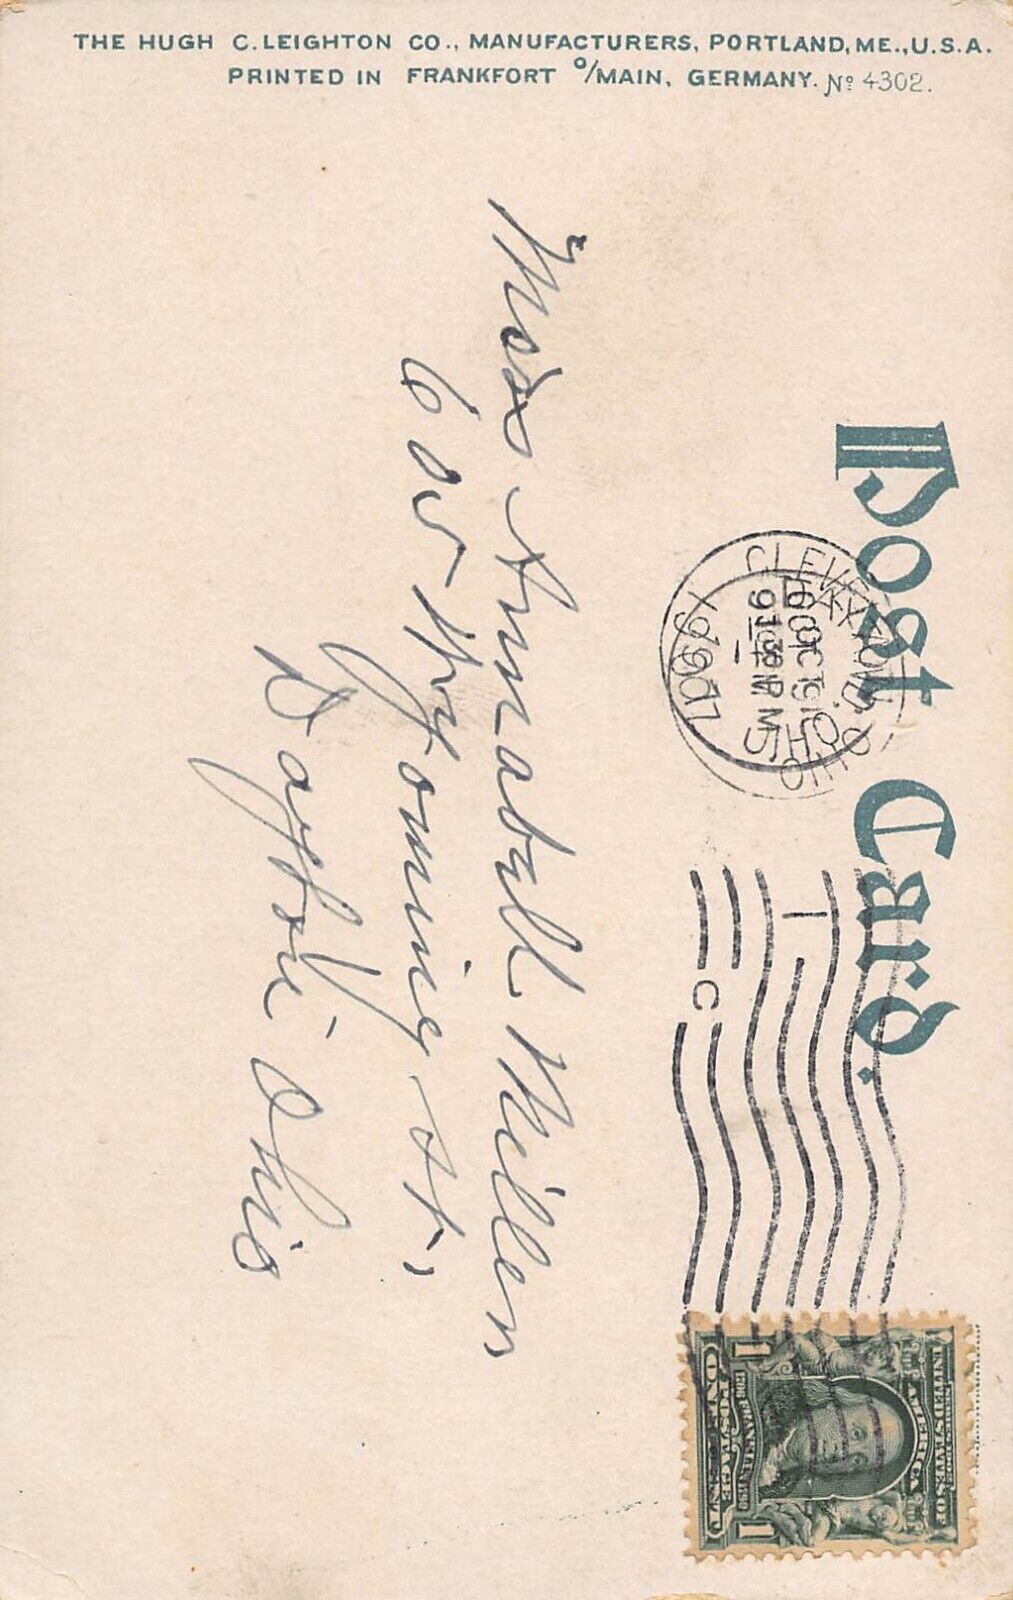 THE HUGH C. LEIGHTON CO., MANUFACTURERS, PORTLAND, ME., U.S.A.
PRINTED IN FRANKFORT o/MAIN, GERMANY. No 4302.
Post Card.
CLEVELAND, OHIO
OCT 19
1907
C
UNITED STATES OF
AMERICA
1 1
POSTAGE
ONE CENT
Miss Annabell Miller
605 Wyoming St,
Dayton Ohio